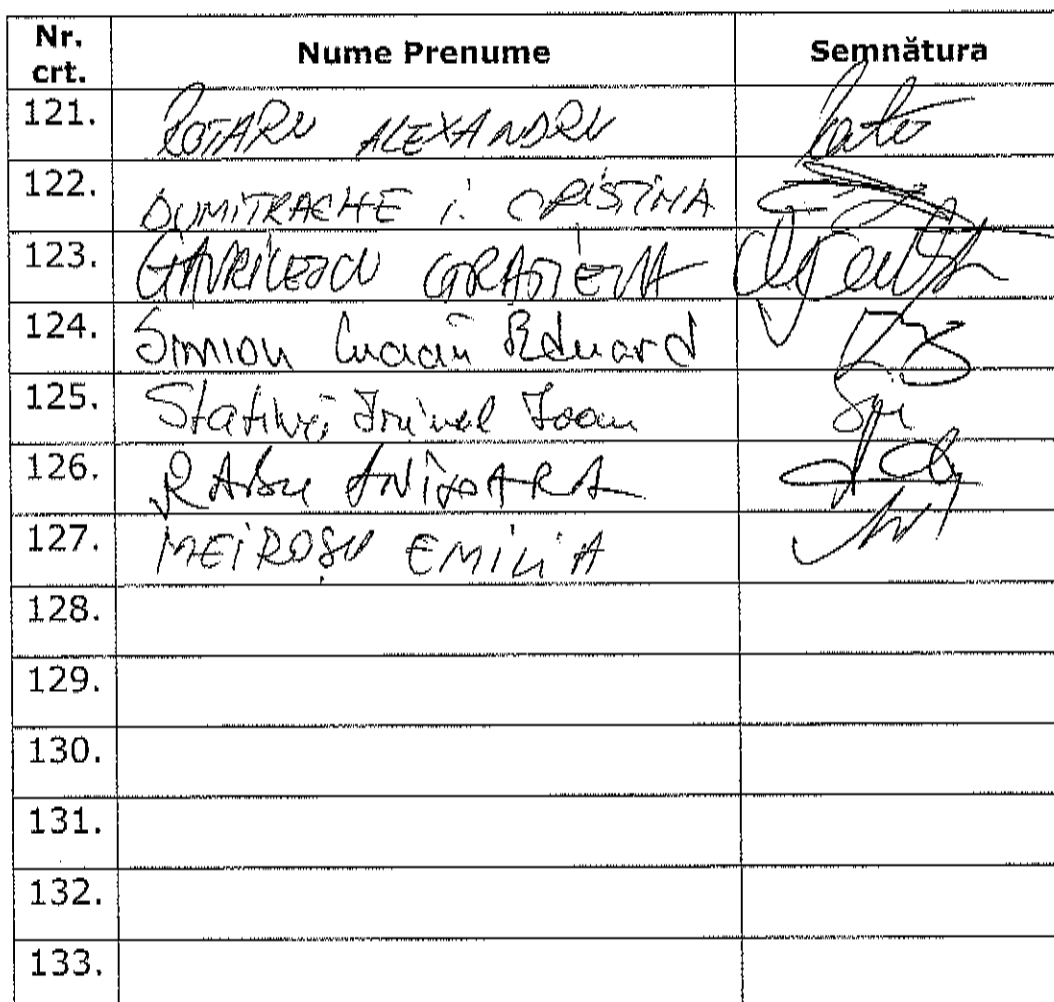 Nr. crt. Nume Prenume Semnătura
121. ROTARU ALEXANDRU
122. DUMITRACHE I. CRISTINA
123. GAVRILESCU GRATIELA
124. Simion Lucian Eduard
125. Stativă Irinel Ioan
126. RADU
127. MEIROȘU EMILIA
128.
129.
130.
131.
132.
133.